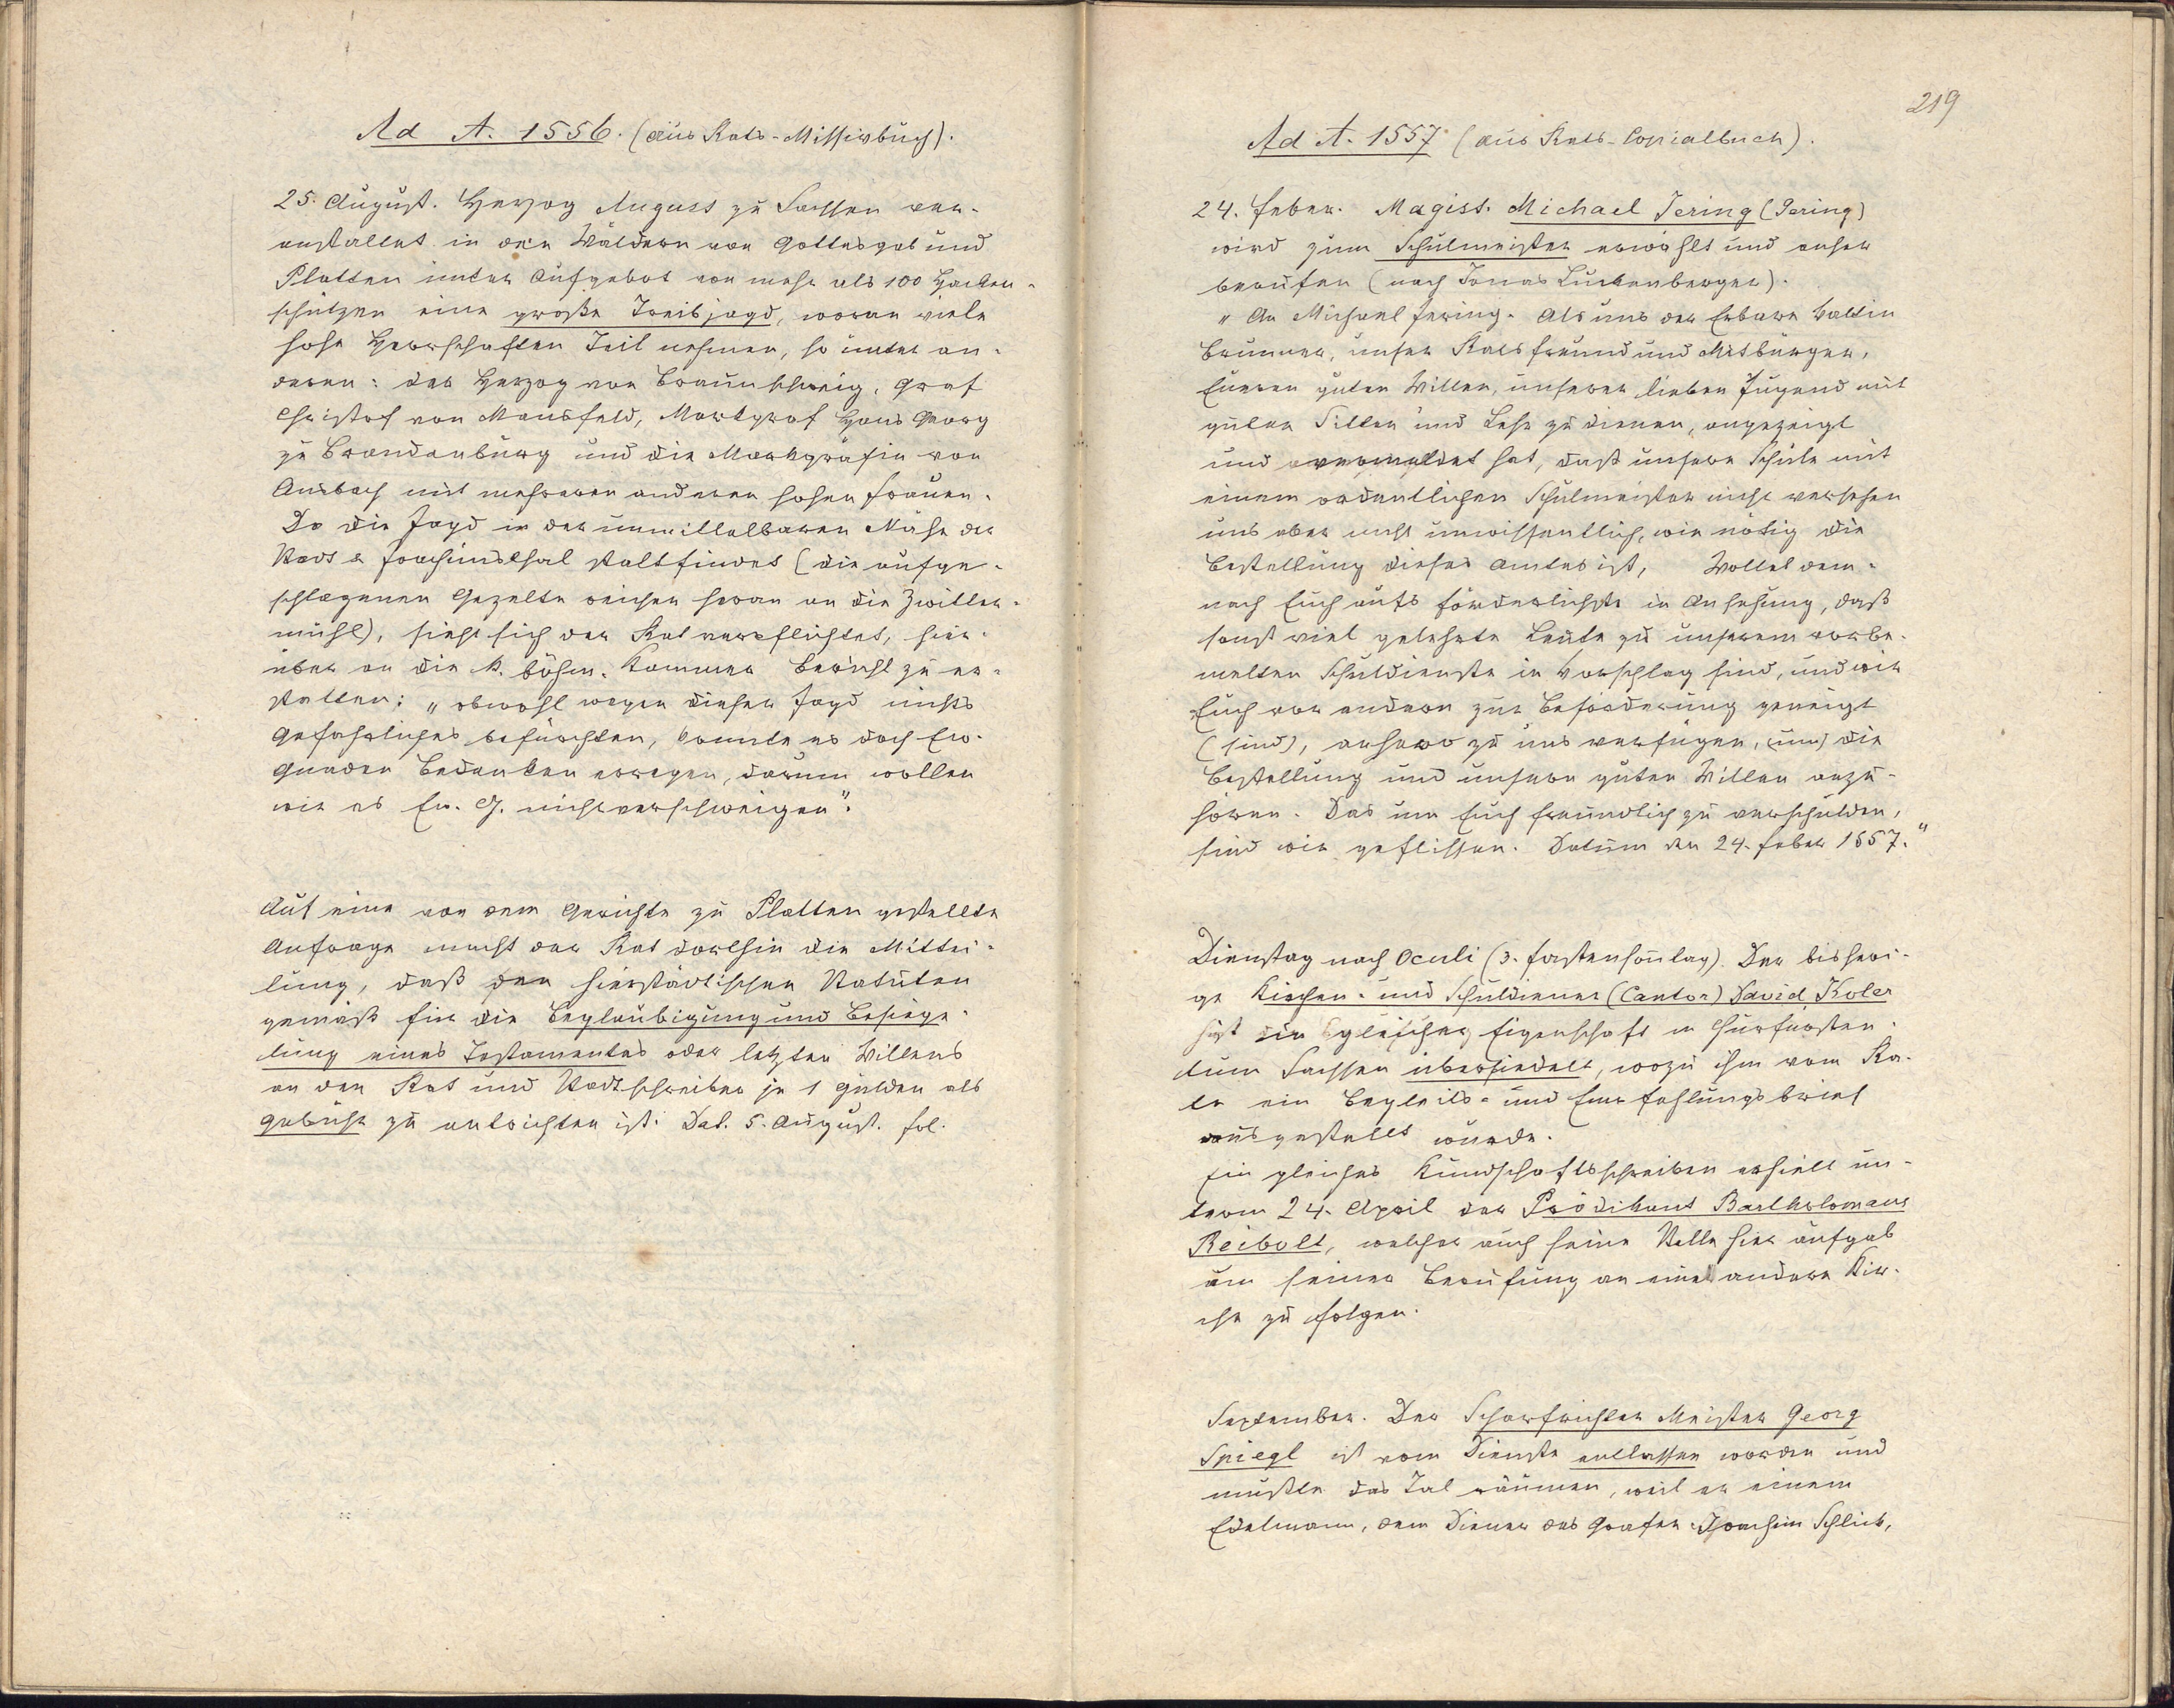 Ad A. 1556. (aus Rats-Missivbuch).
25. August. Herzog August zu Sachsen ver-
anstaltet in den Wäldern von Gottesgab und
Platten unter Aufgebot von mehr als 100 Hacken-
schützen eine große Treibjagd, woran viele
hohe Herrschaften Teil nehmen, so unter an-
deren: der Herzog von Braunschweig, Graf
Christof von Mansfeld, Markgraf Hans Georg
zu Brandenburg und die Markgräfin von
Ansbach mit mehreren anderen hohen Frauen.
Da die Jagd in der unmittelbaren Nähe der
Stadt Joachimsthal stattfindet (die aufge-
schlagenen Gezelte reichen heran an die Zwitter-
mühl), sieht sich der Rat verpflichtet, hier-
über an die k. böhm. Kammer Bericht zu er-
statten; „obwohl wegen dieser Jagd nichts
Gefährliches befürchten, konnte es doch Ew.
Gnaden Bedenken erregen, darum wollen
wir es Ew. G. nicht verschweigen".
Auf eine von dem Gerichte zu Platten gestellte
Anfrage macht der Rat dorthin die Mittei-
lung, daß den hierstädtischen Statuten
gemäß für die Beglaubigung und Besiege-
lung eines Testamentes oder letzten Willens
an den Rat und Stadtschreiber je 1 Gulden als
Gebühr zu entrichten ist. Dat. 5. August. fol.
219
Ad A. 1557 (aus Rats-Copialbuch).
24. Feber. Magist. Michael Jering (Gering)
wird zum Schulmeister erwählt und anher
berufen (nach Jonas Luckenberger).
„An Michael Jering. Als uns der Erbare Valtin
Brunner, unser Ratsfreund und Mitbürger,
Eueren guten Willen, unserer lieben Jugend mit
guten Sitten und Lehr zu dienen, angezeigt
und vermeldet hat, daß unsere Schule mit
einem ordentlichen Schulmeister nicht versehen
uns aber nicht unwissentlich, wie nötig die
Bestellung dieses Amtes ist, Wollet dem-
nach Euch aufs förderlichste in Ansehung, daß
sonst viel gelehrte Leute zu unserem vorbe-
melten Schuldienste in Vorschlag sind, und wir
Euch vor andern zur Beförderung geneigt
(sind), anhero zu uns verfügen, (um) die
Bestellung und unsern guten Willen anzu-
hören. Das um Euch freundlich zu verschulden,
sind wir geflissen. Datum den 24. Feber 1557."
Dienstag nach Oculi (3. Fastensonntag). Der bisheri-
ge Kirchen- und Schuldiener (Cantor) David Koler
ist in gleicher Eigenschaft in Churfürsten-
tum Sachsen übersiedelt, wozu ihm vom Ra-
te ein Begleits- und Empfehlungsbrief
ausgestellt wurde.
Ein gleiches Kundschaftsschreiben erhielt un-
term 24. April der Prädikant Bartholomäus
Reibolt, welcher auch seine Stelle hier aufgab
um seiner Berufung an eine andere Kir-
che zu folgen.
September. Der Scharfrichter Meister Georg
Spiegl ist vom Dienste entlassen worden und
mußte das Tal räumen, weil er einem
Edelmann, dem Diener des Grafen Joachim Schlick,